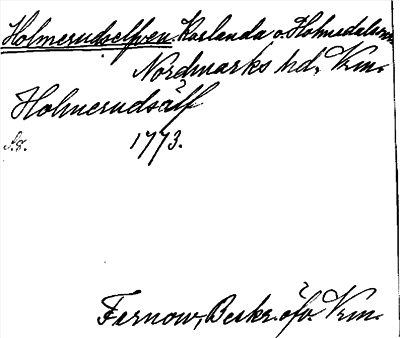 Holmerudselfven Karlanda o. Holmedals sn
Nordmarks hd. Vrm.
Holmerudsälf
1773.
Fernow, Beskr. öfv. Vrm.